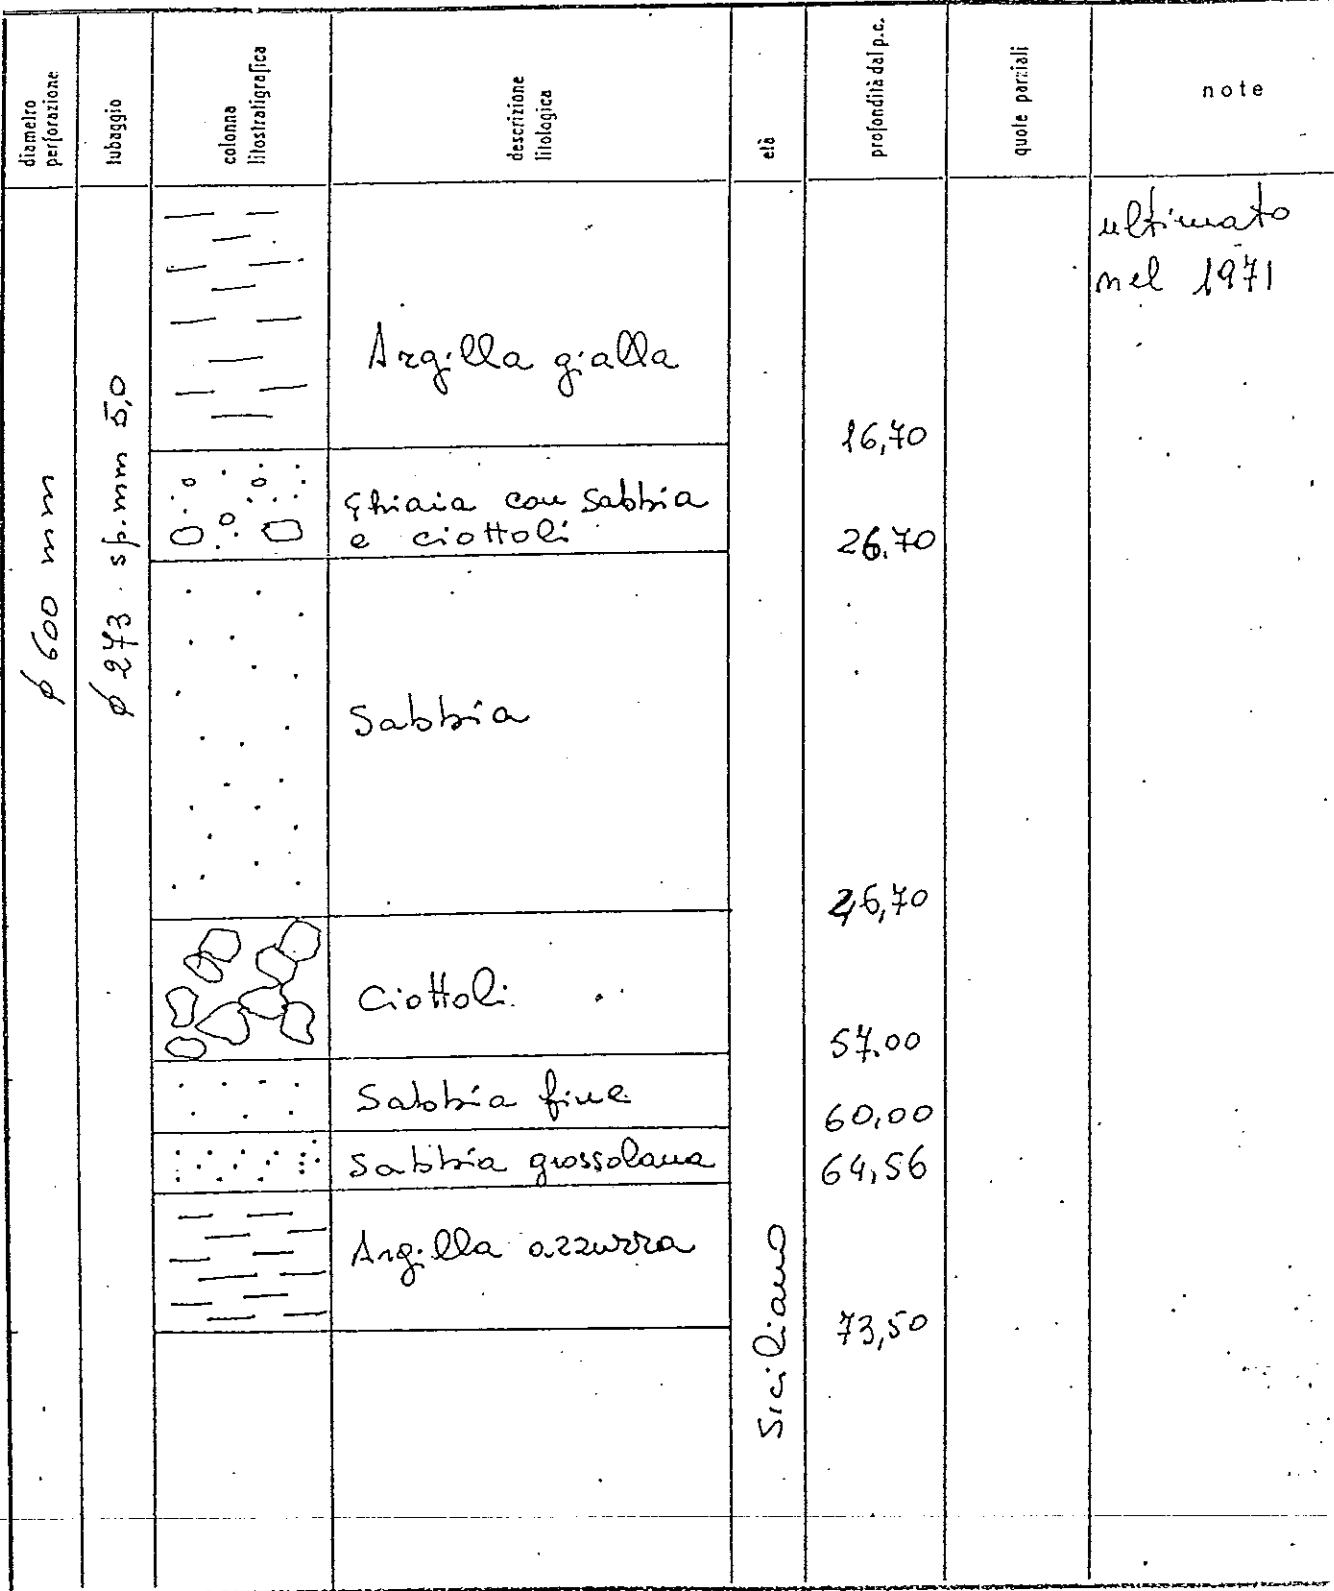 diametro
perforazione
tubaggio
colonna
litostratigrafica
descrizione
litologica
età
profondità dal p.c.
quote parziali
note
ø 600 mm
ø 273 sp. mm 5,0
ultimato
nel 1971
Argilla gialla
16,70
Ghiaia con sabbia
e ciottoli
26,70
Sabbia
Ciottoli
57.00
Sabbia fine
60,00
Sabbia grossolana
64,56
Argilla azzurra
73,50
Siciliano